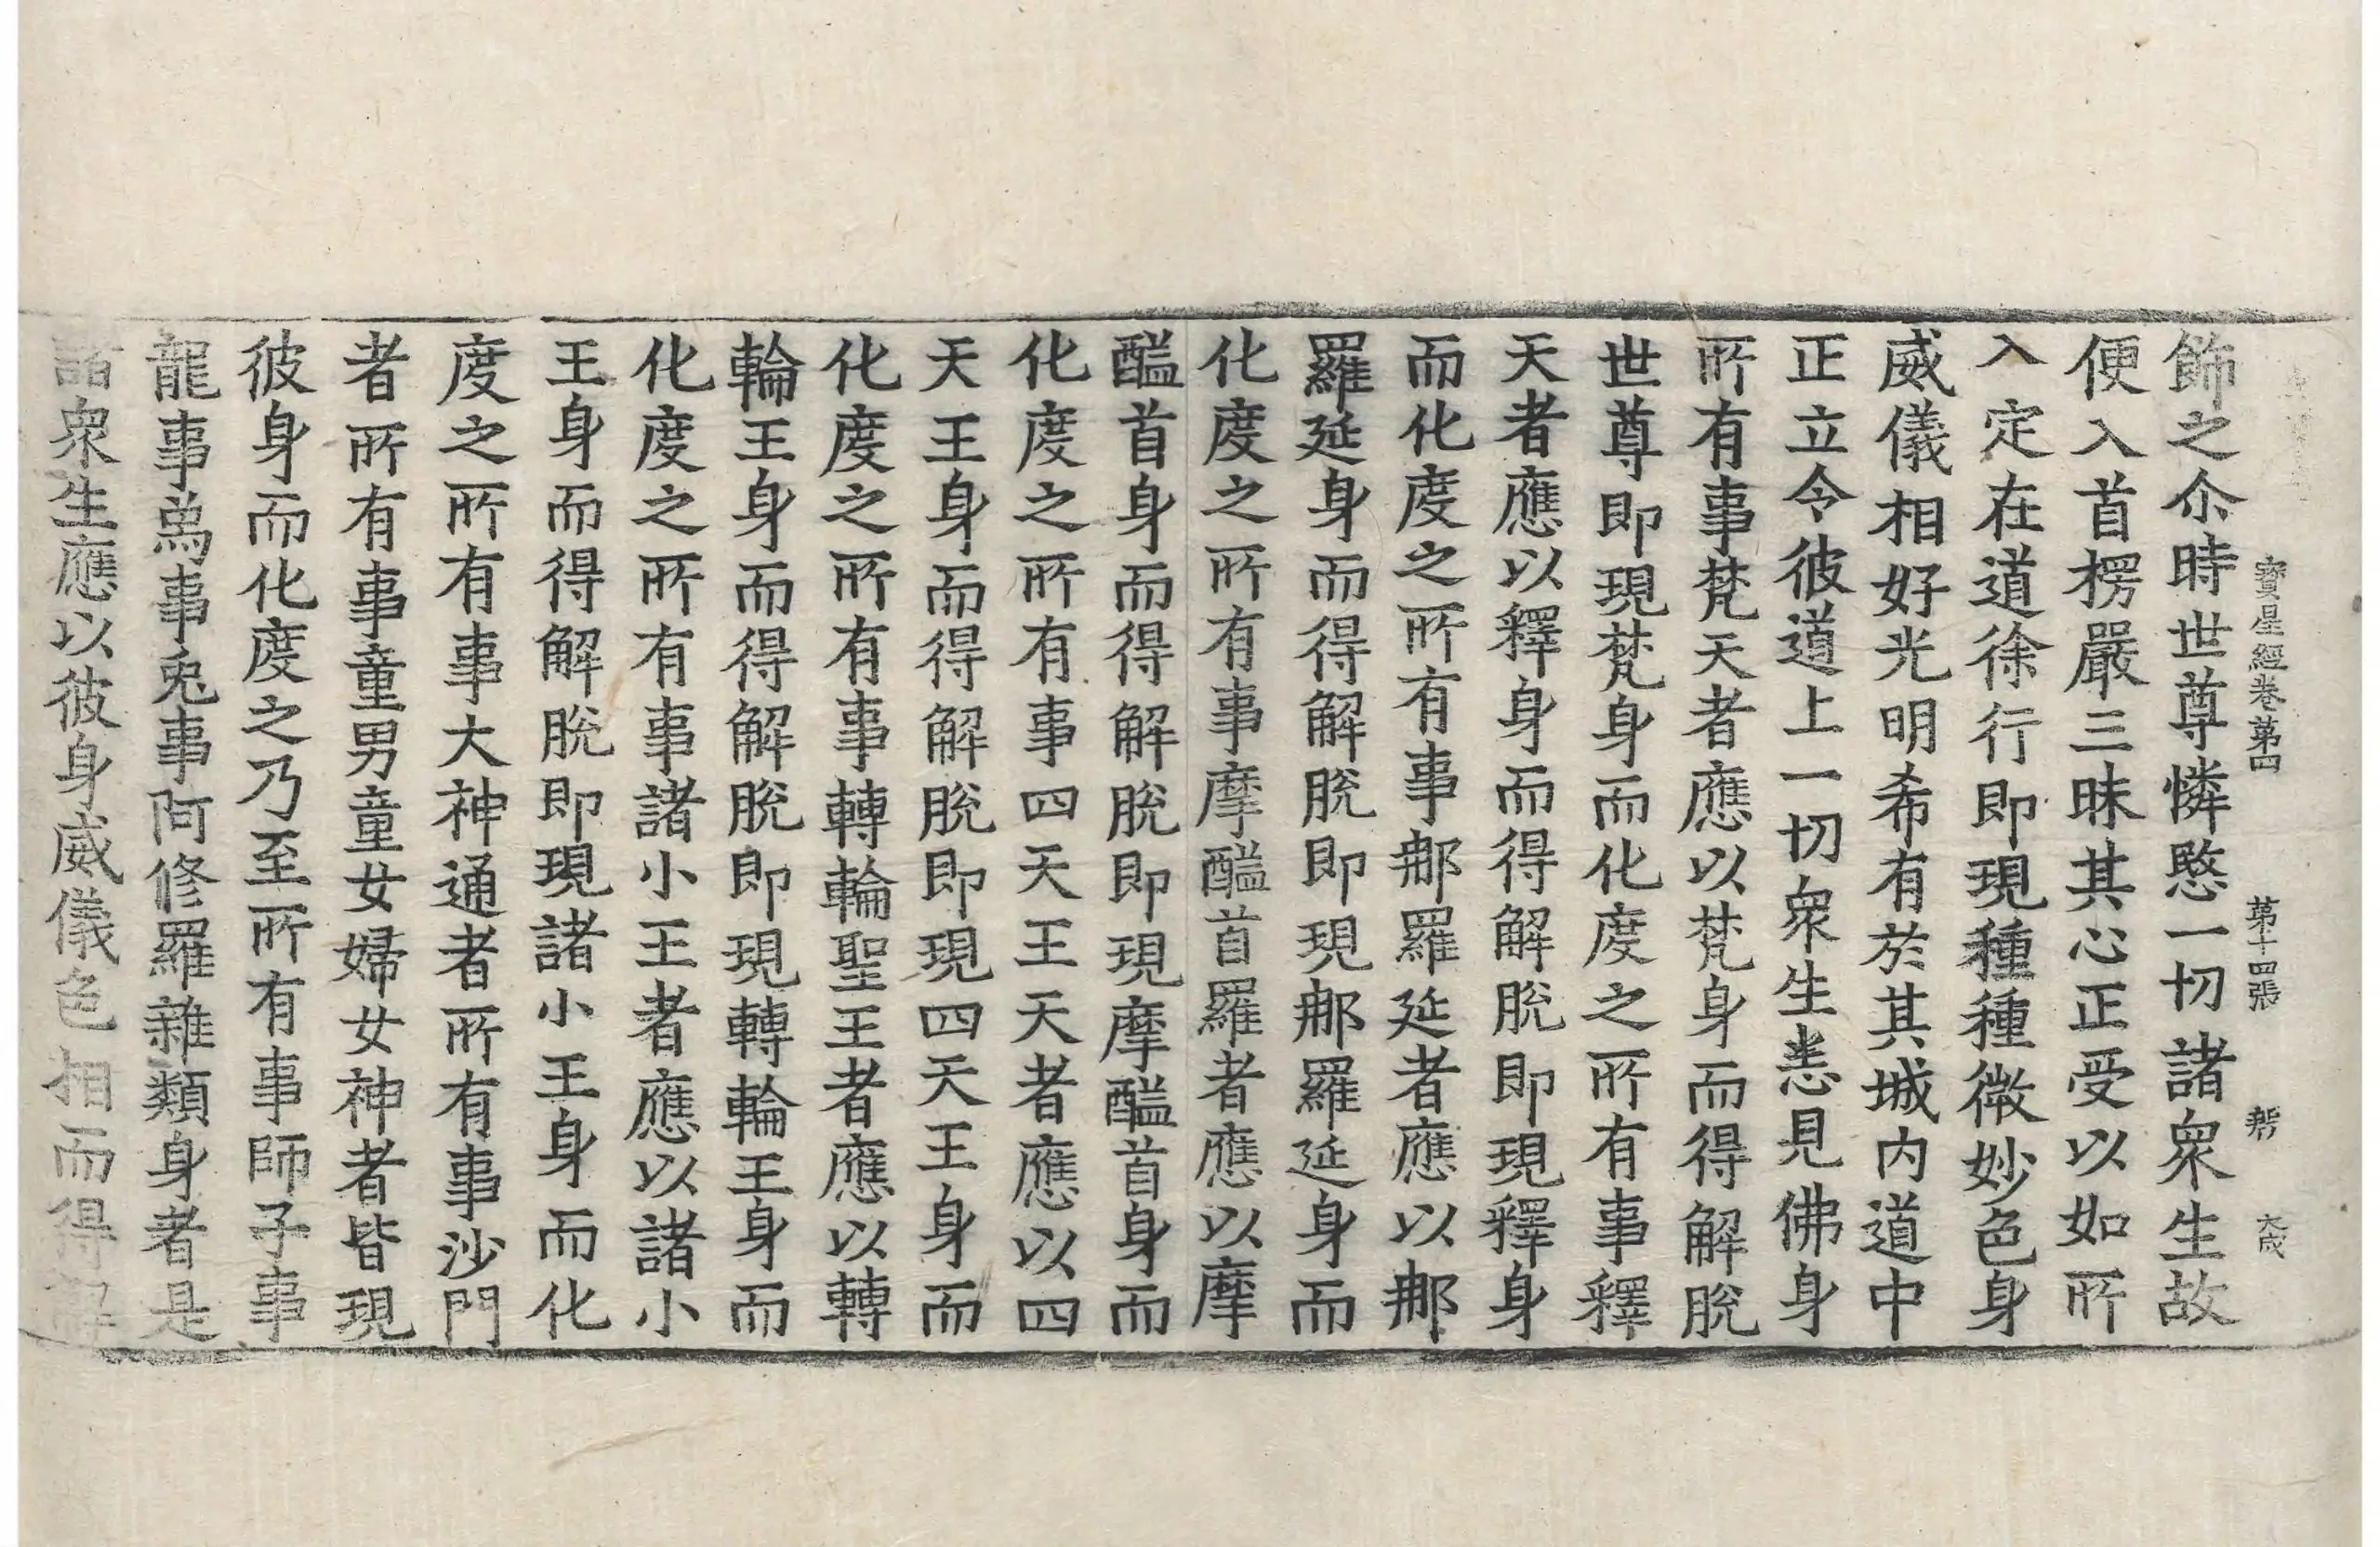 寳星經卷第四 第十四張 大成
飾之尒時世尊憐愍一切諸衆生故
便入首楞嚴三昧其心正受以如所
入定在道徐行即現種種微妙色身
威儀相好光明希有於其城内道中
正立令彼道上一切衆生恙見佛身
所有事梵天者應以梵身而得解脫
世尊即現梵身而化度之所有事釋
天者應以釋身而得解脫即現釋身
而化度之所有事郍羅延者應以郍
羅延身而得解脫即現郍羅延身而
化度之所有事摩醯首羅者應以摩
醯首身而得解脫即現摩醯首身而
化度之所有事四天王天者應以四
天王身而得解脫即現四天王身而
化度之所有事轉輪聖王者應以轉
輪王身而得解脫即現轉輪王身而
化度之所有事諸小王者應以諸小
王身而得解脫即現諸小王身而化
度之所有事大神通者所有事沙門
者所有事童男童女婦女神者皆現
彼身而化度之乃至所有事師子事
龍事爲事兎事阿修羅雜類身者是
諸衆生應以彼身威儀色相而得解